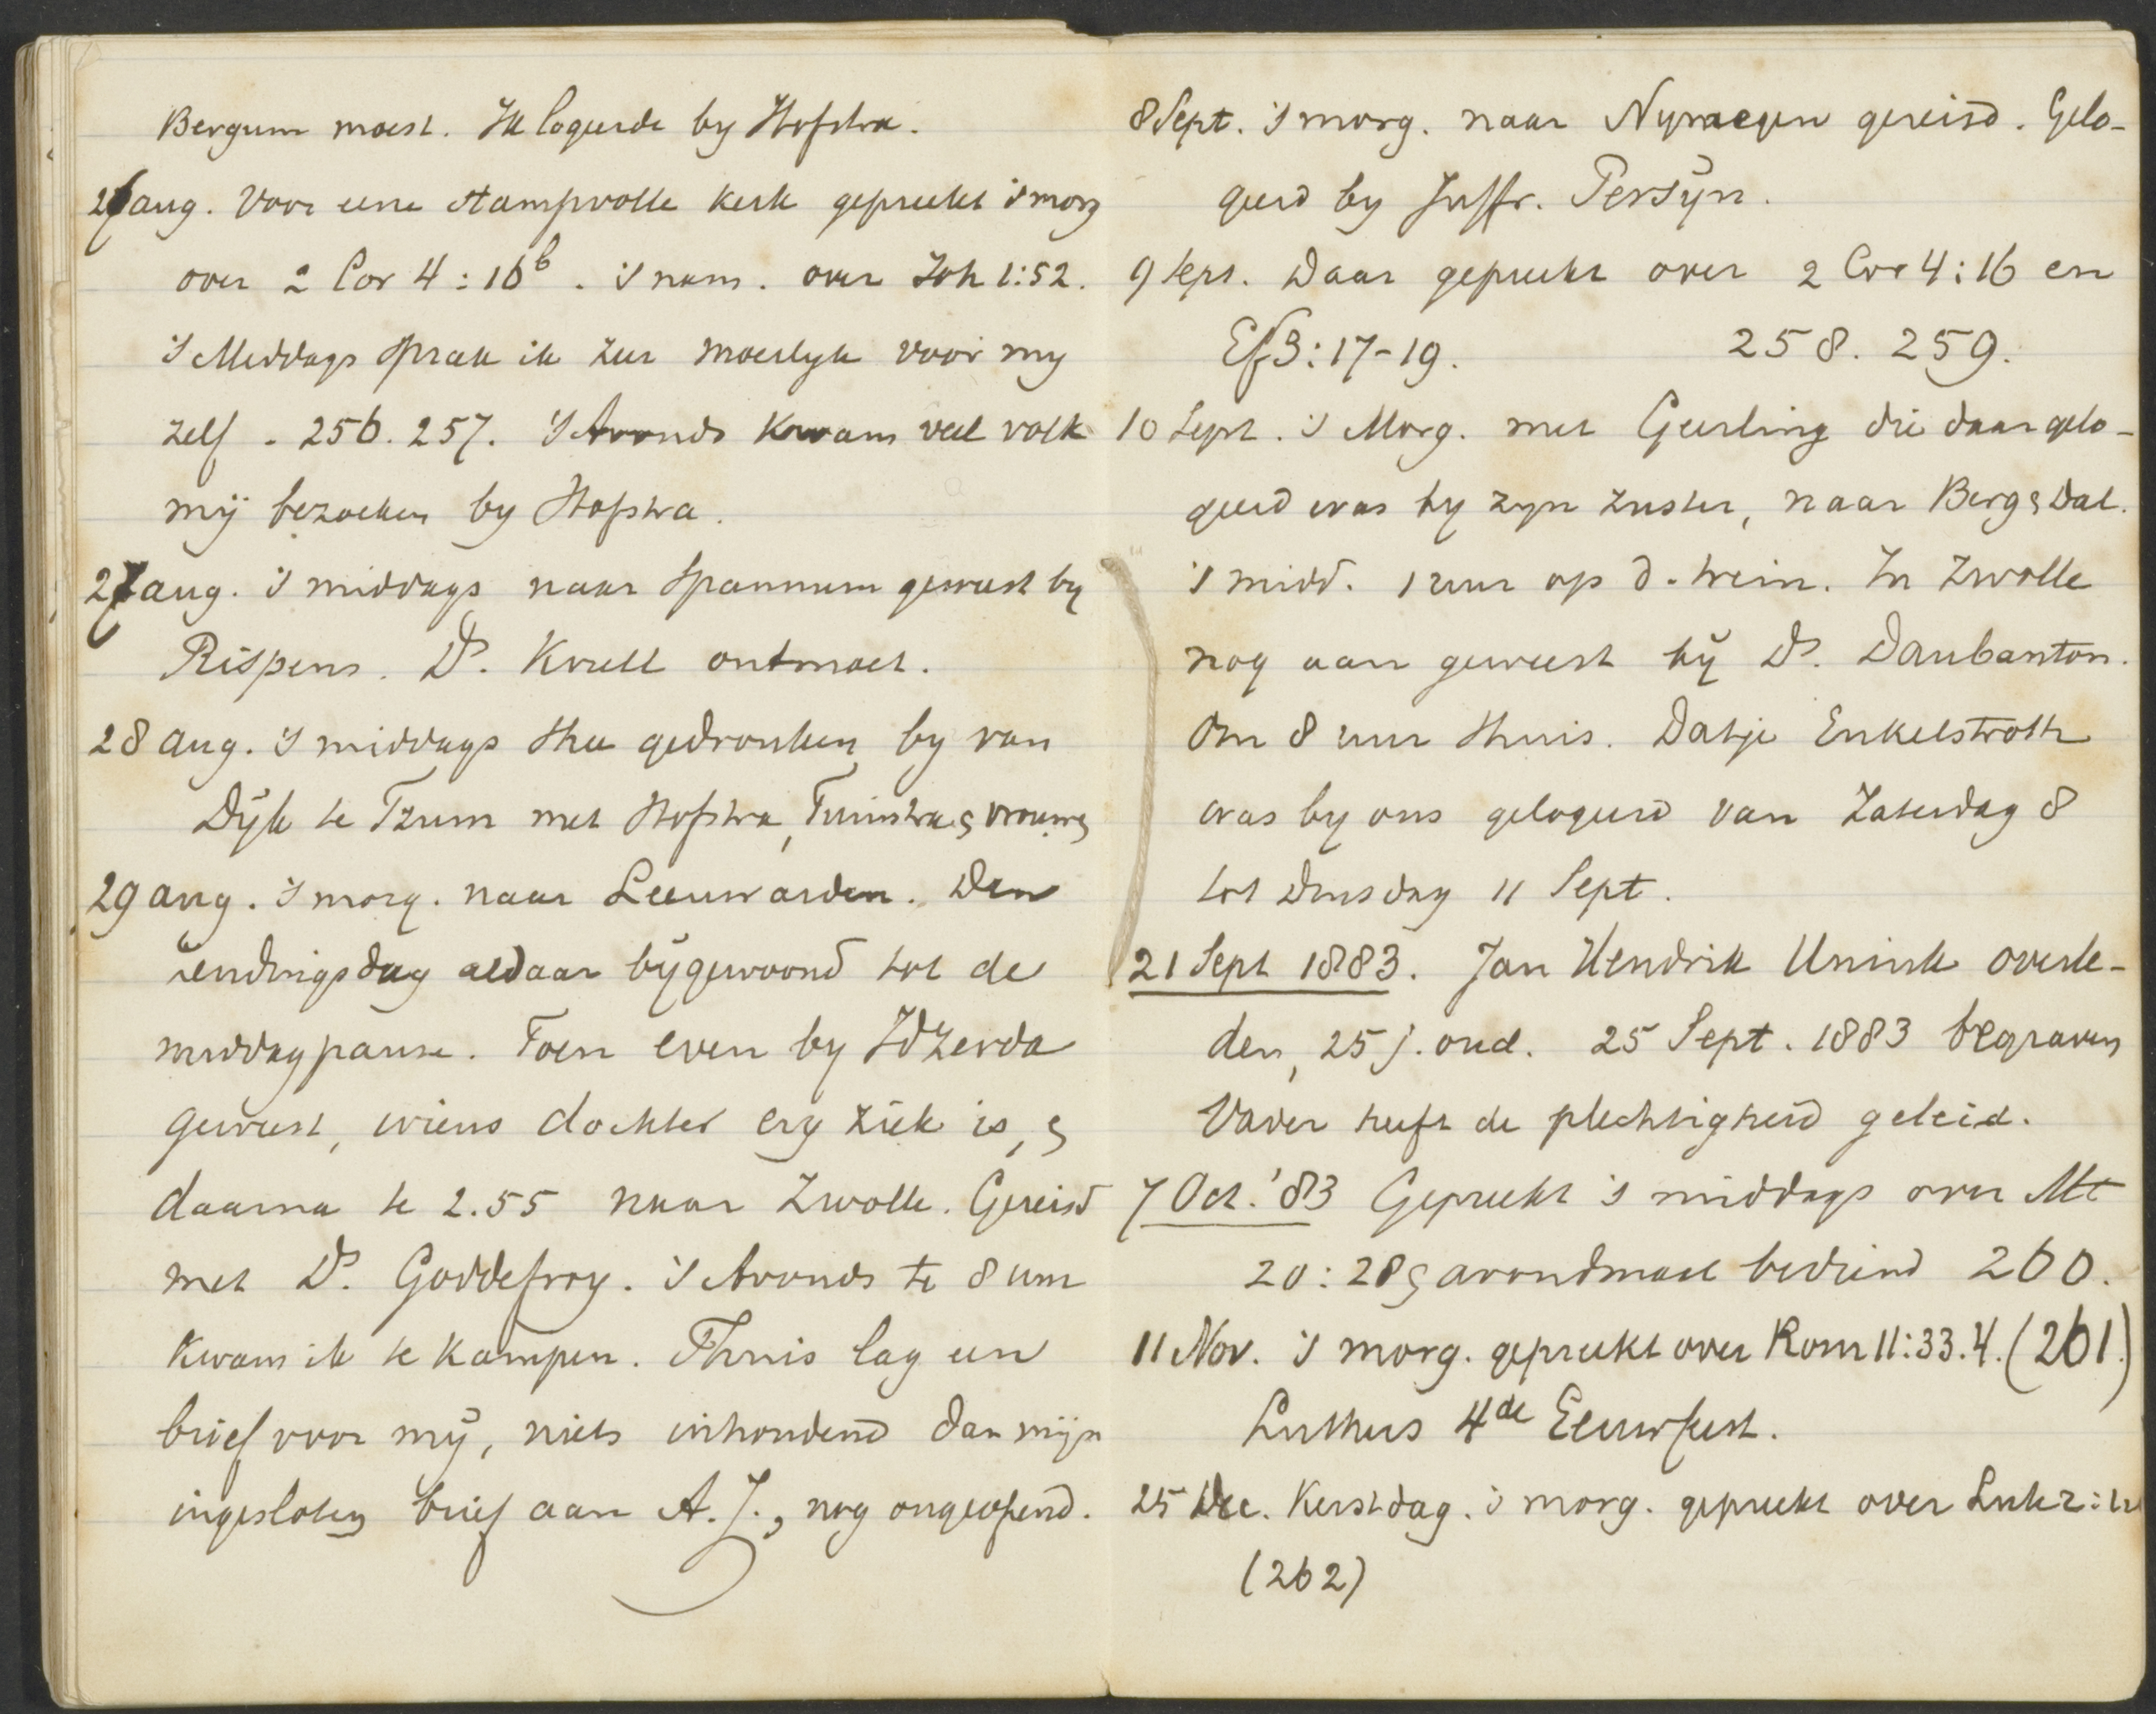 Bergum moest. Ik logeerde by Hofstra.
26 aug. Voor eene stampvolle kerk gepreekt 's morg
over 2 Cor 4:16b. 's nam. over Joh 1:52.
's Middags sprak ik zeer moeilyk voor my
zelf. 256. 257. 's Avonds kwam veel volk
mij bezoeken by Hofstra.
27 aug. 's middags naar Spannum geweest by
Rispens. Ds. Krull ontmoet.
28 aug. 's middags thee gedronken by van
Dijk te Tzum met Hofstra, Tuinstra & vrouwen
29 aug. 's morg. naar Leeuwarden. Den
zendingsdag aldaar bijgewoond tot de
middagpauze. Toen even by Idzerda
geweest, wiens dochter erg ziek is, &
daarna te 2.55 naar Zwolle. Gereisd
met Ds. Goddefroy. 's Avonds te 8 uur
kwam ik te Kampen. Thuis lag een
brief voor mij, niets inhoudend dan mijn
ingesloten brief aan A. J., nog ongeopend.
8 Sept. 's morg. naar Nymegen gereisd. Gelo-
geerd by Juffr. Persijn.
9 Sept. Daar gepreekt over 2 Cor 4:16 en
Ef 3:17-19. 258. 259.
10 Sept. 's Morg. met Geerling die daar gelo-
geerd was by zyn zuster, naar Berg & Dal.
's midd. 1 uur op d. trein. In Zwolle
nog aan geweest bij Ds. Daubanton.
Om 8 uur thuis. Datje Enkelstroth
was by ons gelogeerd van Zaterdag 8
tot Dinsdag 11 Sept.
21 Sept 1883. Jan Hendrik Unink overle-
den, 25 j. oud. 25 Sept. 1883 begraven
Vader heeft de plechtigheid geleid.
7 Oct. '83 Gepreekt 's middags over Mt
20:28 & avondmaal bediend 260.
11 Nov. 's morg. gepreekt over Rom 11:33.4. (261.)
Luthers 4de Eeuwfeest.
25 Dec. Kerstdag. 's morg. gepreekt over Luk 2:
(262)